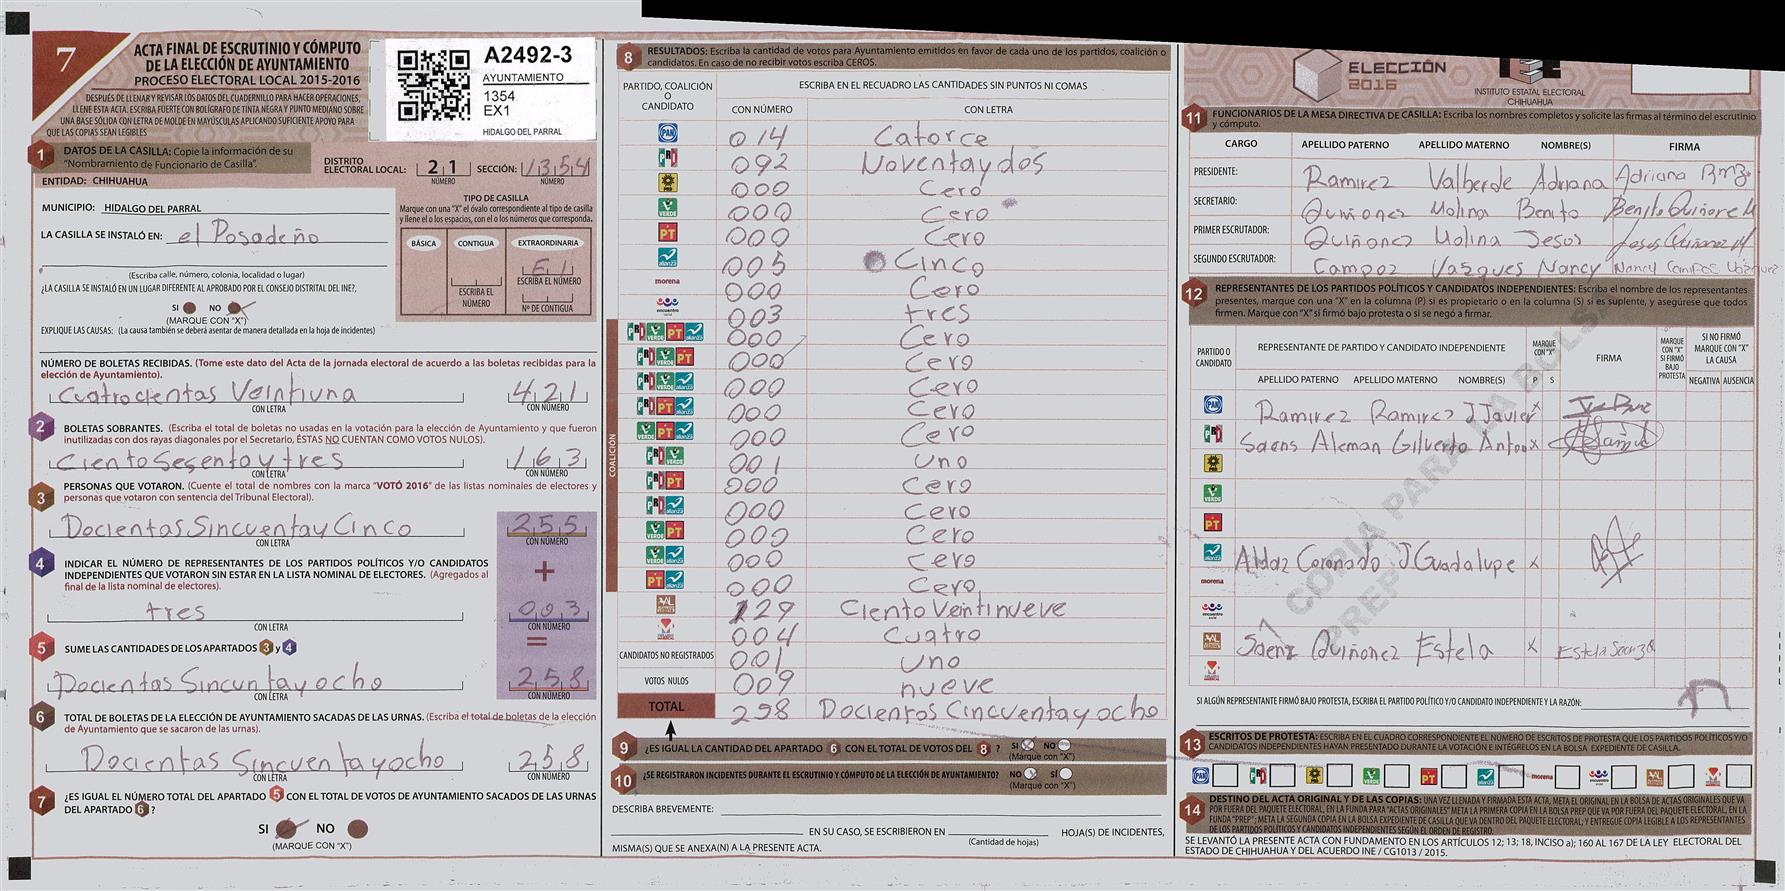 7
ACTA FINAL DE ESCRUTINIO Y CÓMPUTO
DE LA ELECCIÓN DE AYUNTAMIENTO
PROCESO ELECTORAL LOCAL 2015-2016
DESPUÉS DE LLENAR Y REVISAR LOS DATOS DEL CUADERNILLO PARA HACER OPERACIONES,
LLENE ESTA ACTA. ESCRIBA FUERTE CON BOLÍGRAFO DE TINTA NEGRA Y PUNTO MEDIANO SOBRE
UNA BASE SÓLIDA CON LETRA DE MOLDE EN MAYÚSCULAS APLICANDO SUFICIENTE APOYO PARA
QUE LAS COPIAS SEAN LEGIBLES
A2492-3
AYUNTAMIENTO
1354
EX1
HIDALGO DEL PARRAL
1 DATOS DE LA CASILLA: Copie la información de su
"Nombramiento de Funcionario de Casilla".
DISTRITO ELECTORAL LOCAL: 21 NÚMERO SECCIÓN: 1354 NÚMERO
ENTIDAD: CHIHUAHUA
MUNICIPIO: HIDALGO DEL PARRAL
LA CASILLA SE INSTALÓ EN: el Posadeño
(Escriba calle, número, colonia, localidad o lugar)
¿LA CASILLA SE INSTALÓ EN UN LUGAR DIFERENTE AL APROBADO POR EL CONSEJO DISTRITAL DEL INE?,
SI NO
(MARQUE CON "X")
EXPLIQUE LAS CAUSAS: (La causa también se deberá asentar de manera detallada en la hoja de incidentes)
TIPO DE CASILLA
Marque con una "X" el óvalo correspondiente al tipo de casilla
y llene el o los espacios, con el o los números que corresponda.
BÁSICA CONTIGUA EXTRAORDINARIA
E1
ESCRIBA EL NÚMERO ESCRIBA EL NÚMERO
Nº DE CONTIGUA
NÚMERO DE BOLETAS RECIBIDAS. (Tome este dato del Acta de la jornada electoral de acuerdo a las boletas recibidas para la
elección de Ayuntamiento).
Cuatrocientas Veintiuna 421
CON LETRA CON NÚMERO
2 BOLETAS SOBRANTES. (Escriba el total de boletas no usadas en la votación para la elección de Ayuntamiento y que fueron
inutilizadas con dos rayas diagonales por el Secretario, ÉSTAS NO CUENTAN COMO VOTOS NULOS).
Ciento Sesenta y tres 163
CON LETRA CON NÚMERO
3 PERSONAS QUE VOTARON. (Cuente el total de nombres con la marca "VOTÓ 2016" de las listas nominales de electores y
personas que votaron con sentencia del Tribunal Electoral).
Docientas Sincuenta y Cinco 255
CON LETRA CON NÚMERO
4 INDICAR EL NÚMERO DE REPRESENTANTES DE LOS PARTIDOS POLÍTICOS Y/O CANDIDATOS
INDEPENDIENTES QUE VOTARON SIN ESTAR EN LA LISTA NOMINAL DE ELECTORES. (Agregados al
final de la lista nominal de electores).
+
tres 003
CON LETRA CON NÚMERO
=
5 SUME LAS CANTIDADES DE LOS APARTADOS 3 y 4
Docientas Sincunta y ocho 258
CON LETRA CON NÚMERO
6 TOTAL DE BOLETAS DE LA ELECCIÓN DE AYUNTAMIENTO SACADAS DE LAS URNAS. (Escriba el total de boletas de la elección
de Ayuntamiento que se sacaron de las urnas).
Docientas Sincuenta y ocho 258
CON LETRA CON NÚMERO
7 ¿ES IGUAL EL NÚMERO TOTAL DEL APARTADO 5 CON EL TOTAL DE VOTOS DE AYUNTAMIENTO SACADOS DE LAS URNAS
DEL APARTADO 6?
SI NO
(MARQUE CON "X")
8 RESULTADOS: Escriba la cantidad de votos para Ayuntamiento emitidos en favor de cada uno de los partidos, coalición o
candidatos. En caso de no recibir votos escriba CEROS.
PARTIDO, COALICIÓN O CANDIDATO
ESCRIBA EN EL RECUADRO LAS CANTIDADES SIN PUNTOS NI COMAS
CON NÚMERO CON LETRA
PAN 014 Catorce
PRI 092 Noventa y dos
PRD 000 Cero
VERDE 000 Cero
PT 000 Cero
alianza 005 Cinco
morena 000 Cero
encuentro social 003 tres
COALICIÓN
PRI VERDE PT alianza 000 Cero
PRI VERDE PT 000 Cero
PRI VERDE alianza 000 Cero
PRI PT alianza 000 Cero
VERDE PT alianza 000 Cero
PRI VERDE 001 uno
PRI PT 000 Cero
PRI alianza 000 Cero
VERDE PT 000 Cero
VERDE alianza 000 Cero
PT alianza 000 Cero
129 Ciento Veintinueve
004 Cuatro
CANDIDATOS NO REGISTRADOS 001 uno
VOTOS NULOS 009 nueve
TOTAL 258 Docientos Cincuenta y ocho
9 ¿ES IGUAL LA CANTIDAD DEL APARTADO 6 CON EL TOTAL DE VOTOS DEL 8? SI NO
(Marque con "X")
10 ¿SE REGISTRARON INCIDENTES DURANTE EL ESCRUTINIO Y CÓMPUTO DE LA ELECCIÓN DE AYUNTAMIENTO? NO SÍ
(Marque con "X")
DESCRIBA BREVEMENTE:
EN SU CASO, SE ESCRIBIERON EN HOJA(S) DE INCIDENTES,
(Cantidad de hojas)
MISMA(S) QUE SE ANEXA(N) A LA PRESENTE ACTA.
ELECCIÓN
2016
INSTITUTO ESTATAL ELECTORAL
CHIHUAHUA
11 FUNCIONARIOS DE LA MESA DIRECTIVA DE CASILLA: Escriba los nombres completos y solicite las firmas al término del escrutinio
y cómputo.
CARGO APELLIDO PATERNO APELLIDO MATERNO NOMBRE(S) FIRMA
PRESIDENTE: Ramirez Valberde Adriana Adriana Rmz
SECRETARIO: Quiñonez Molina Benito Benito Quiñone M
PRIMER ESCRUTADOR: Quiñonez Molina Jesus Jesus Quiñonez M
SEGUNDO ESCRUTADOR: Campoz Vazques Nancy Nancy Campos Vazquez
12 REPRESENTANTES DE LOS PARTIDOS POLÍTICOS Y CANDIDATOS INDEPENDIENTES: Escriba el nombre de los representantes
presentes, marque con una "X" en la columna (P) si es propietario o en la columna (S) si es suplente, y asegúrese que todos
firmen. Marque con "X" si firmó bajo protesta o si se negó a firmar.
PARTIDO O CANDIDATO
REPRESENTANTE DE PARTIDO Y CANDIDATO INDEPENDIENTE
MARQUE CON "X"
FIRMA
MARQUE CON "X" SI FIRMÓ BAJO PROTESTA
SI NO FIRMÓ MARQUE CON "X" LA CAUSA
APELLIDO PATERNO APELLIDO MATERNO NOMBRE(S) P S NEGATIVA AUSENCIA
PAN Ramirez Ramirez J Javier X
PRI Saens Aleman Gilverto Anton X
PRD
VERDE
PT
alianza Aldaz Coronado J. Guadalupe X
morena
encuentro social
Saenz Quiñonez Estela X Estela Saenz Q
COPIA PARA LA BOLSA
PREP
SI ALGÚN REPRESENTANTE FIRMÓ BAJO PROTESTA, ESCRIBA EL PARTIDO POLÍTICO Y/O CANDIDATO INDEPENDIENTE Y LA RAZÓN:
13 ESCRITOS DE PROTESTA: ESCRIBA EN EL CUADRO CORRESPONDIENTE EL NÚMERO DE ESCRITOS DE PROTESTA QUE LOS PARTIDOS POLÍTICOS Y/O
CANDIDATOS INDEPENDIENTES HAYAN PRESENTADO DURANTE LA VOTACIÓN E INTÉGRELOS EN LA BOLSA EXPEDIENTE DE CASILLA.
PAN PRI PRD VERDE PT alianza morena encuentro social
14 DESTINO DEL ACTA ORIGINAL Y DE LAS COPIAS: UNA VEZ LLENADA Y FIRMADA ESTA ACTA, META EL ORIGINAL EN LA BOLSA DE ACTAS ORIGINALES QUE VA
POR FUERA DEL PAQUETE ELECTORAL, EN LA FUNDA PARA "ACTAS ORIGINALES" META LA PRIMERA COPIA EN LA BOLSA PREP QUE VA POR FUERA DEL PAQUETE ELECTORAL, EN LA
FUNDA "PREP"; META LA SEGUNDA COPIA EN LA BOLSA EXPEDIENTE DE CASILLA QUE VA DENTRO DEL PAQUETE ELECTORAL; Y ENTREGUE COPIA LEGIBLE A LOS REPRESENTANTES
DE LOS PARTIDOS POLÍTICOS Y CANDIDATOS INDEPENDIENTES SEGÚN EL ORDEN DE REGISTRO.
SE LEVANTÓ LA PRESENTE ACTA CON FUNDAMENTO EN LOS ARTÍCULOS 12; 13; 18, INCISO a); 160 AL 167 DE LA LEY ELECTORAL DEL
ESTADO DE CHIHUAHUA Y DEL ACUERDO INE / CG1013 / 2015.